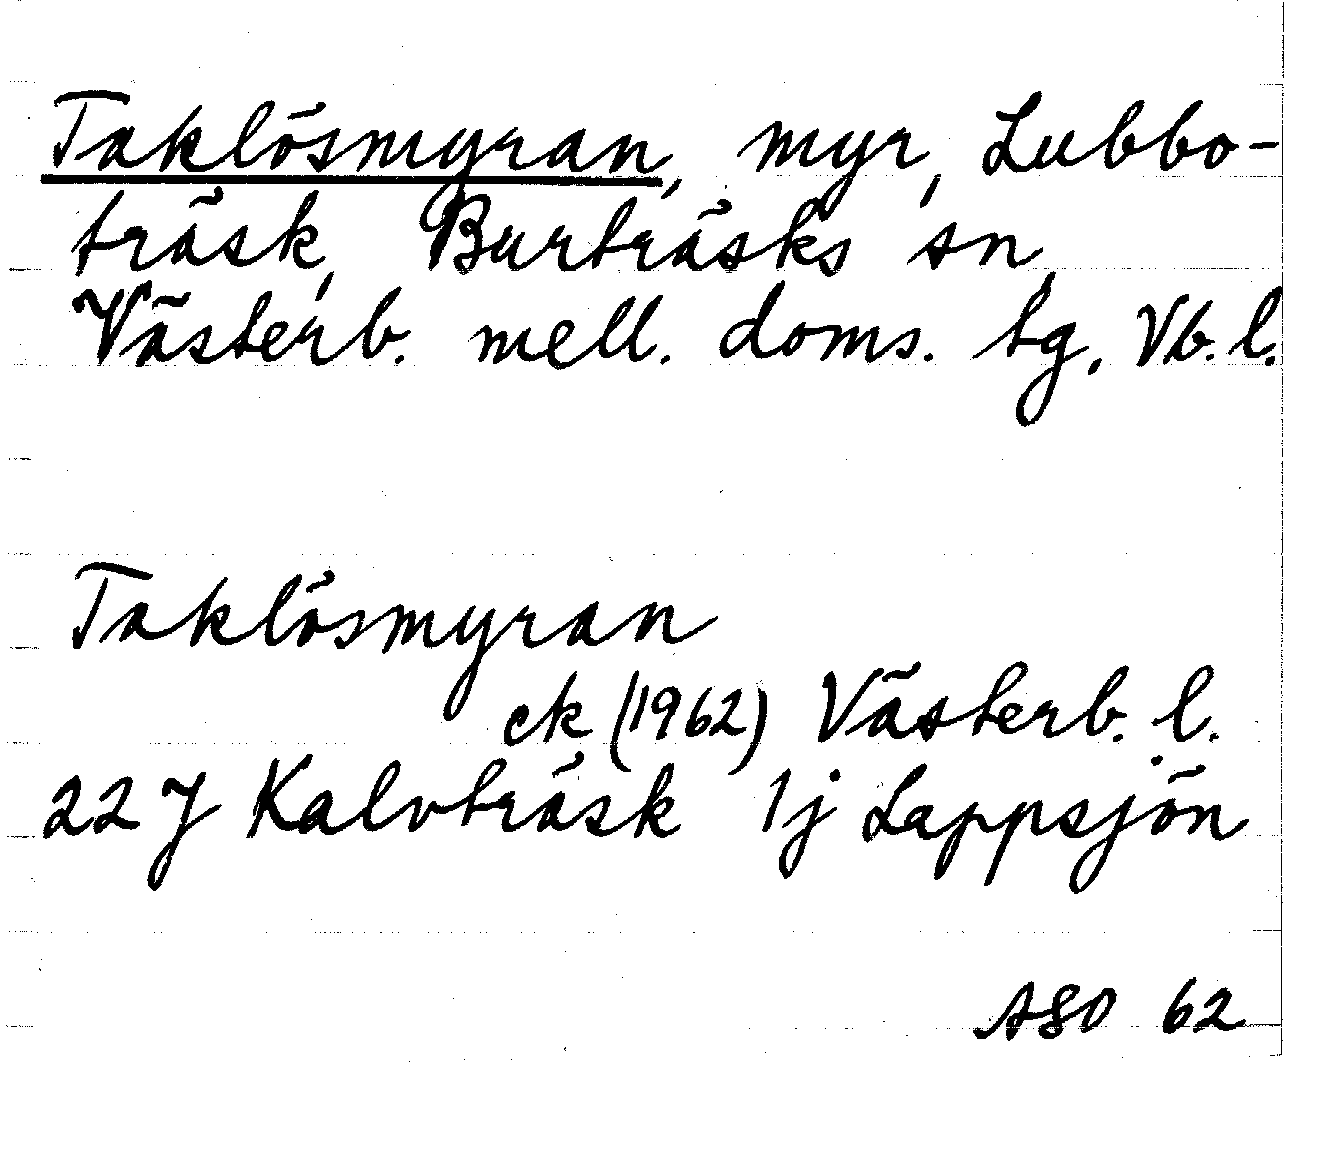 Taklösmyran, myr, Lubbo-
träsk, Burträsks sn,
Västerb. mell. doms. tg, Vb. l.
Taklösmyran
ek (1962) Västerb. l.
22 J Kalvträsk 1j Lappsjön
ASO 62